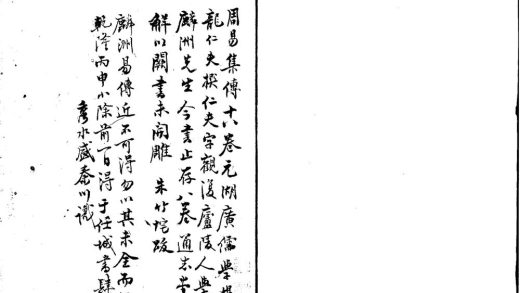 周易集傳十八卷元湖廣儒學提
龍仁夫撰仁夫字觀復廬陵人學
麟洲先生今書止存八卷通志堂
解以闕書未開雕　朱竹垞跋
麟洲易傳近不可得勿以其未全而
乾隆丙申小除前一日得于任城書肆
秀水盛百川識